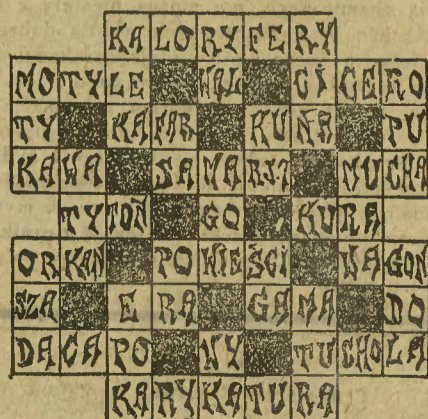 KA LO RY FE RY
MO TY LE WAL CI CE RO
TY KA FAR KU NA PU
KA WA SA MA RY MU CHA
TY TOŃ GO KU RA
OR KAN PO WIE ŚCI WA GON
SZA E RA GA MA DO
DA CA PO NY TU CHO LA
KA RY KA TU RA